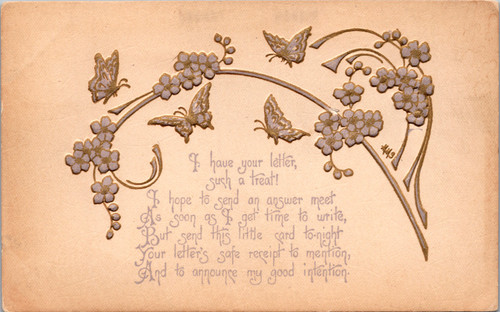 I have your letter,
such a treat!
I hope to send an answer meet
As soon as I get time to write,
But send this little card to-night
Your letter's safe receipt to mention,
And to announce my good intention.